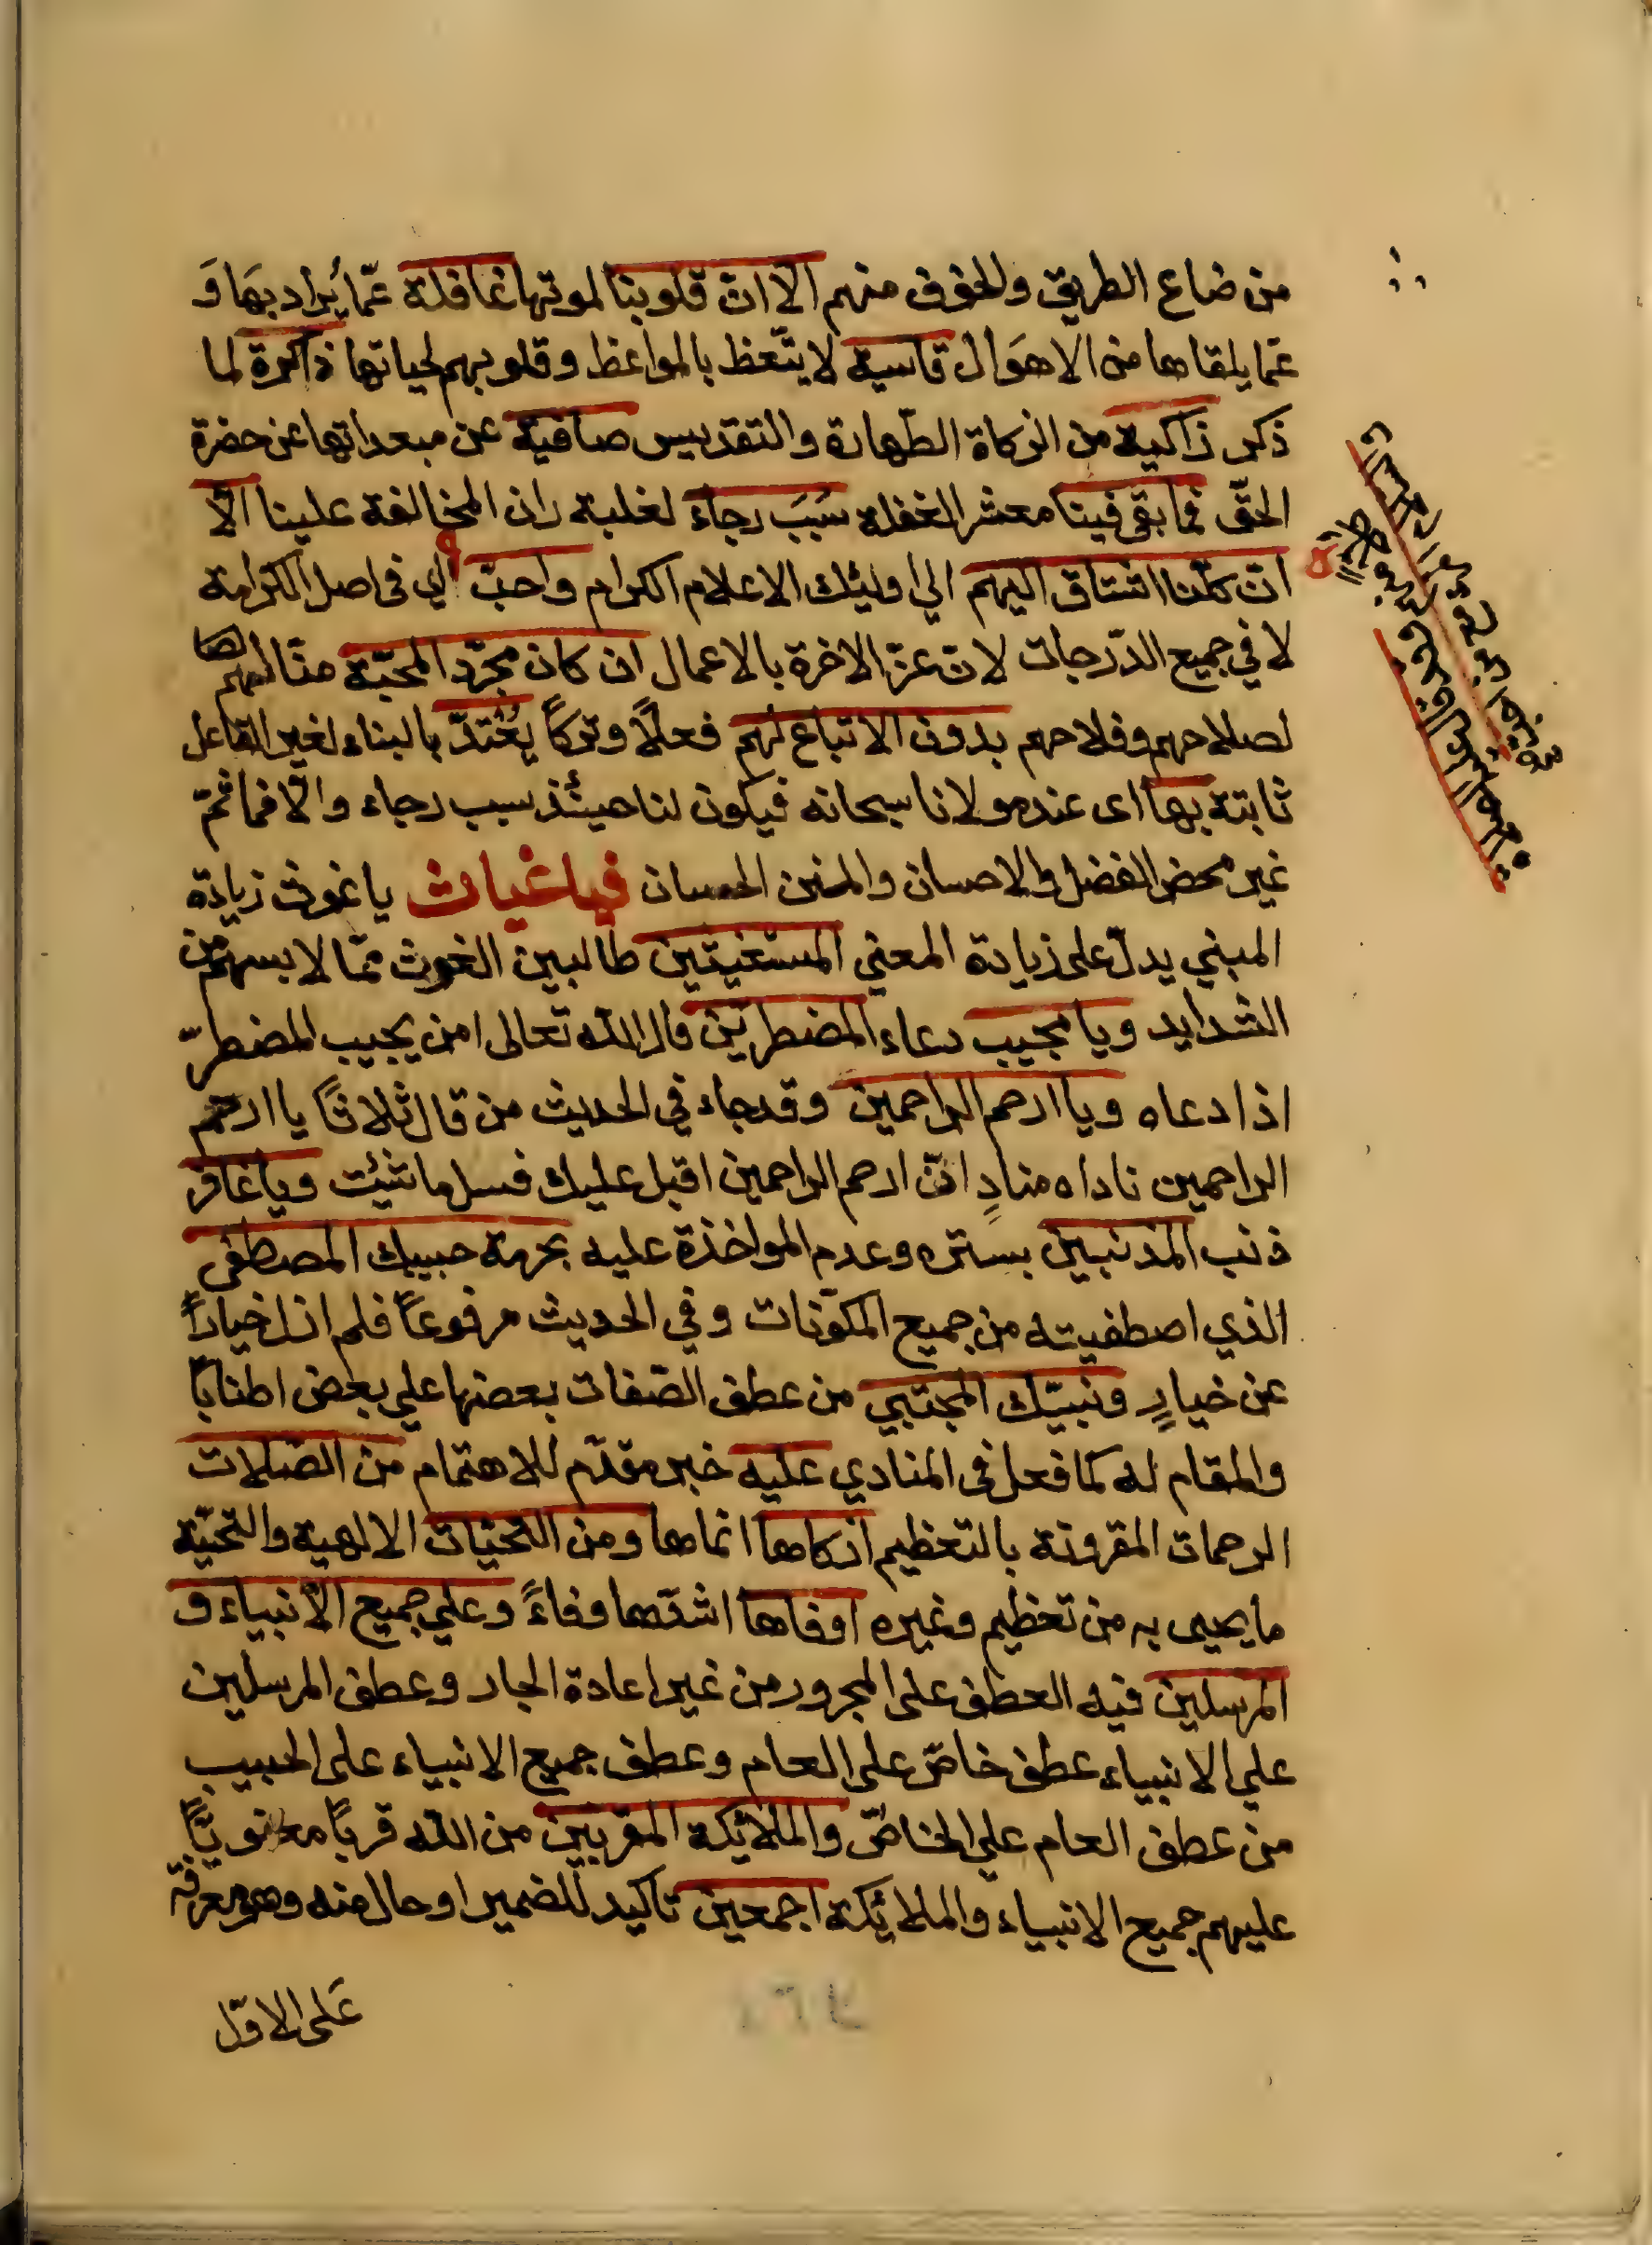 من ضاع الطريق والخوف منهم الا ان قلوبنا لموتها غافلة عمّا يُراد بهَا وَ
عمّا يلقاها من الاهوَال قاسية لا يتّعظ بالمواعظ وقلوبهم لحياتها ذاكرة لما
ذكر زاكية من الزكاة الطّهارة والتقديس صافية عن مبعداتها عن حضرة
الحقّ فما بقى فينا معشر الغفلة سَبَبَ رجاء لغلبة ران المخالفة علينا الّا
ان كلّنا اشتاق اليهم الي اوليئك الاعلام الكرام واحبّ اي في اصل الكرامة
لا في جميع الدّرجات لان عزّ الاخرة بالاعمال ان كان مجرّد المحبّة منّا لهم
لصلاحهم وفلاحهم بدون الاتباع لهم فعلاً وتركاً يُعْتدّ بالبناء لغير الفاعل
ثابتة بها اى عند مولانا سبحانه فيكون لنا حينئذ سبب رجاء والّا فما ثمّ
غير محض الفضل والاحسان والمنن الحسان فيا غياث يا غوث زيادة
المبني يدلّ على زيادة المعني المستغيثين طالبين الغوث ممّا لابسهم من
الشدايد ويا مجيب دعاء المضطرين قال الله تعالى امن يجيب المضطرّ
اذا دعاه ويا ارحم الراحمين وقد جاء في الحديث من قال ثلاثاً يا ارحم
الراحمين ناداه منادٍ انّ ارحم الراحمين اقبل عليك فسل ما شئت ويا غافر
ذنب المذنبين بستره وعدم المواخذة عليه بحرمة حبيبك المصطفى
الذي اصطفيته من جميع المكوّنات وفي الحديث مرفوعاً فلم ازل خياراً
عن خيارٍ ونبيّك المجتبي من عطف الصّفات بعضها علي بعض اطناباً
والمقام له كما فعل فى المنادي عليه خبر مقدّم للاهتمام من الصّلات
الرحمات المقرونة بالتعظيم ازكاها انماها ومن التحيّات الالهية والتحيّة
ما يحيى به من تعظيم وغيره اوفاها اشدّها وفاءً وعلي جميع الانبياء و
المرسلين فيه العطف على المجرور من غير اعادة الجار وعطف المرسلين
علي الانبياء عطف خاصّ على العام وعطف جميع الانبياء على الحبيب
من عطف العام علي الخاصّ والملائكة المقربين من الله قرباً معنويّاً
عليهم جميع الانبياء والملائكة اجمعين تاكيد للضمير او حال منه وهو معرفة
عَلى الاوّل